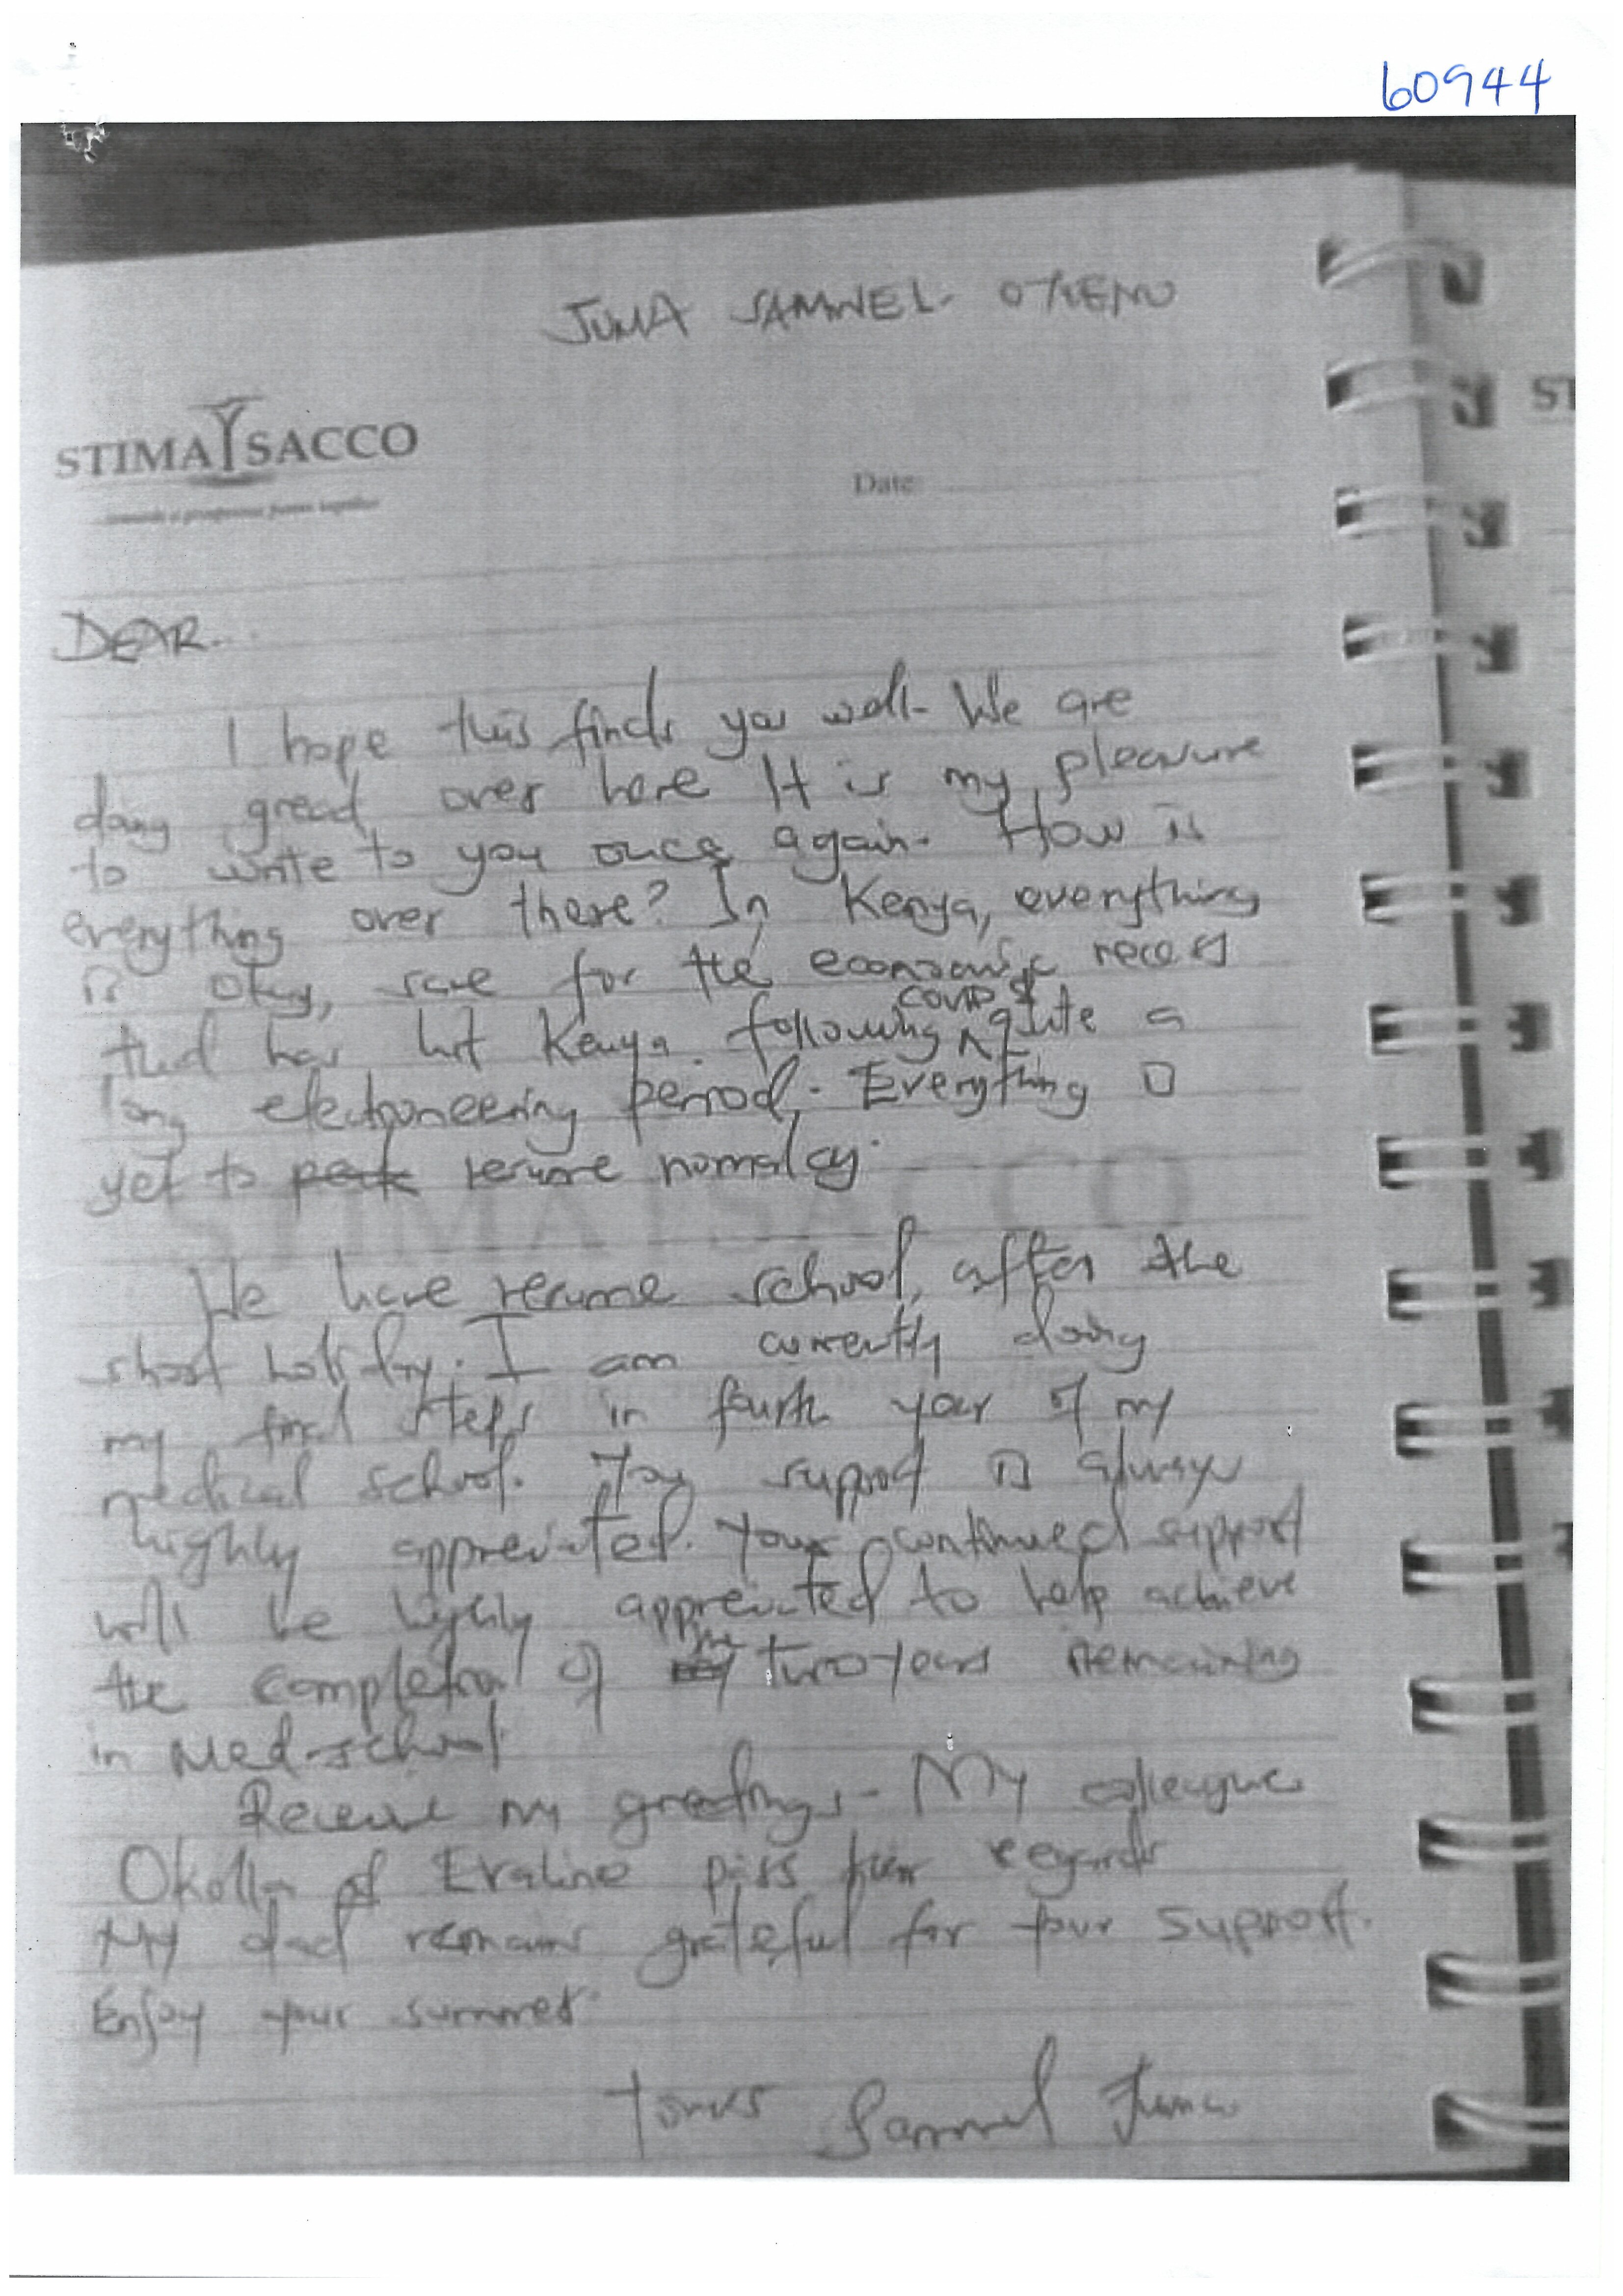 60944
JUMA SAMWEL OTIENO
STIMA SACCO
ST
Date
DEAR.
I hope this finds you well. We are
doing great over here It is my pleasure
to write to you once again. How is
everything over there? In Kenya, everything
is okay, save for the economic recess
that has hit Kenya. following COVID & quite a
long electioneering period,. Everything is
yet to resume normalcy.
STIMA SACCO
We have resume school, after the
short holiday. I am currently doing
my final steps in fourth year of my
medical school. Your support is always
highly appreciated. Your continued support
will be highly appreciated to help achieve
the completion of the two years remaining
in Med-school.
Receive my greetings. My colleagues
Okolla & Evaline pass their regards
My dad remains grateful for your support.
Enjoy your summer.
Yours Samwel Juma